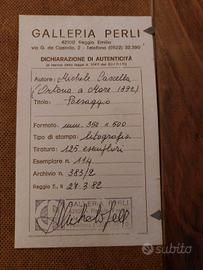 GALLERIA PERLI
42100 Reggio Emilia
via G. da Castello, 2 - Telefono (0522)
DICHIARAZIONE DI AUTENTICITÀ
Autore: Michele Cascella
(Ortona a Mare 1892)
Titolo: Paesaggio
Formato: mm. 350 x 500
Tipo di stampa: litografia
Tiratura: 125 esemplari
Esemplare n° 114
Archivio n° 383/2
Reggio E. 27.3.82
GALLERIA PERLI
subito